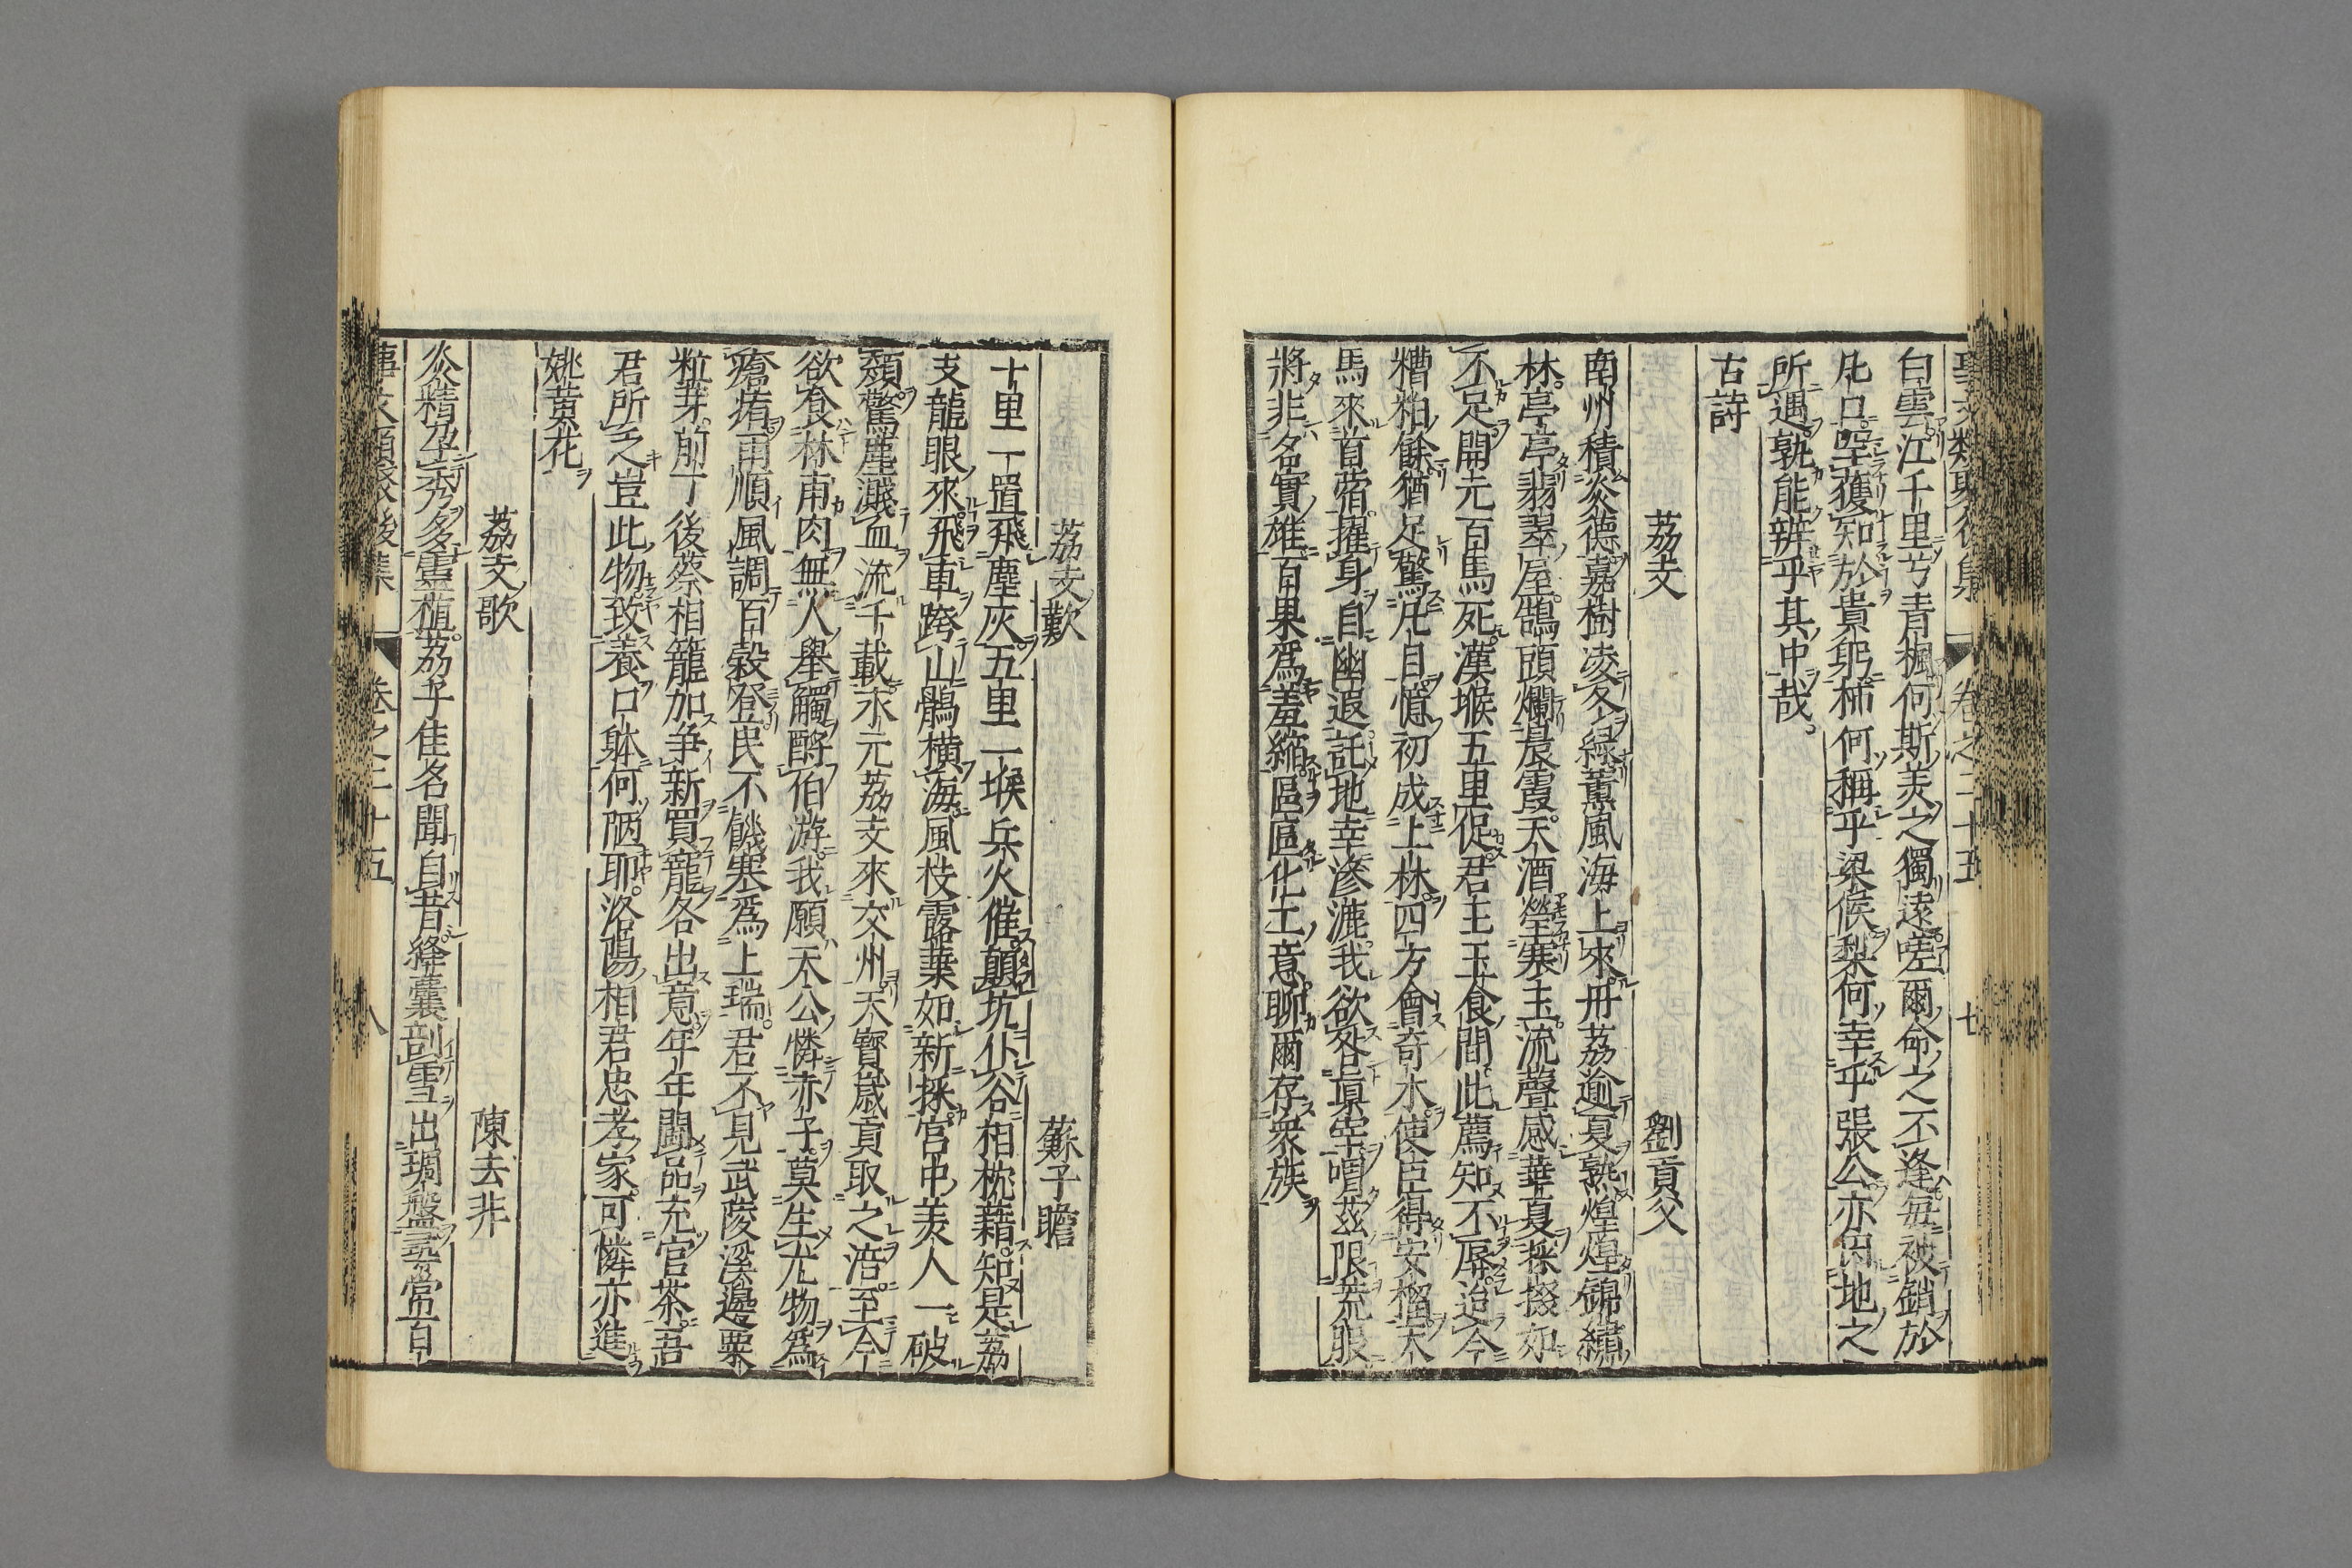 事文類聚後集 卷之二十五 七
白雲江千里兮青楓何斯美之獨遠嗟爾命之不逢毎被銷於
凡口罕獲知於貴躬柿何稱乎梁侯梨何幸乎張公亦因地之
所遇孰能辨乎其中哉
古詩
荔支 劉貢父
南州積炎德嘉樹凌冬綠薰風海上來丹荔逾夏熟煌煌錦繡
林亭亭翡翠屋鶴頭爛晨霞天酒瑩寒玉流聲感華夏採掇如
不足開元百馬死漢堠五里促君王玉食間此薦知不辱迨今
糟粕餘猶足驚凡目憶初成上林四方會奇木使臣得安榴天
馬來首蓿擢身自幽遐託地幸滲漉我欲咎真宰唱茲限荒服
將非名實雄百果爲羞縮區區化工意聊爾存衆族
荔支歎 蘇子瞻
十里一置飛塵灰五里一堠兵火催顛坑仆谷相枕藉知是荔
支龍眼來飛車跨山鶻橫海風枝露葉如新採宮中美人一破
顏驚塵濺血流千載永元荔支來交州天寶歲貢取之涪至今
欲食林甫肉無人舉觴酹伯游我願天公憐赤子莫生尤物爲
瘡痏雨順風調百穀登民不饑寒爲上瑞君不見武陵溪邊粟
粒芽前丁後蔡相籠加争新買寵各出意年年鬪品充官茶吾
君所乏豈此物致養口躰何陋耶洛陽相君忠孝家可憐亦進
姚黃花
荔支歌 陳去非
炎精孕秀多靈植荔子佳名聞自昔絳囊剖雪出琱盤尋常百
事文類聚後集 卷之二十五 八